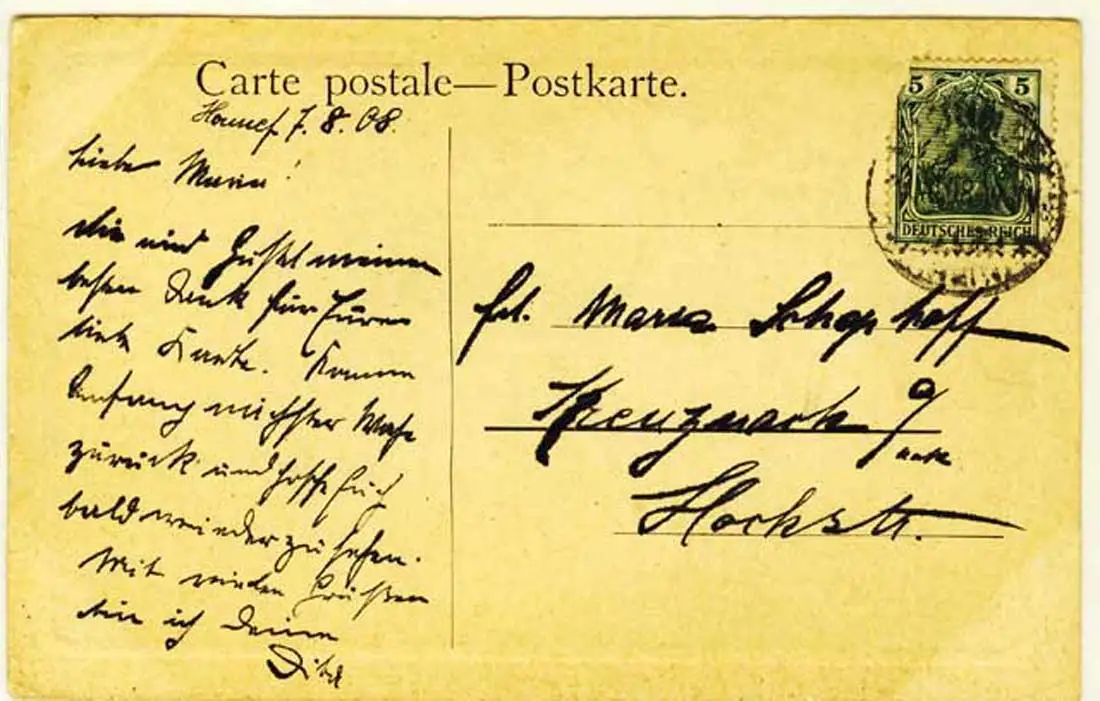 Carte postale—Postkarte.
Honnef 7.8.08.
Liebe Maria!
Dir und Gustel meinen
besten Dank für Eure
liebe Karte. Komme
Anfang nächster Woche
zurück und hoffe Euch
bald wieder zu sehen.
Mit vielen Grüßen
bin ich Deine
5 5
DEUTSCHES REICH
Frl. Maria
Kreuznach a/
Nahe
Hochstr.